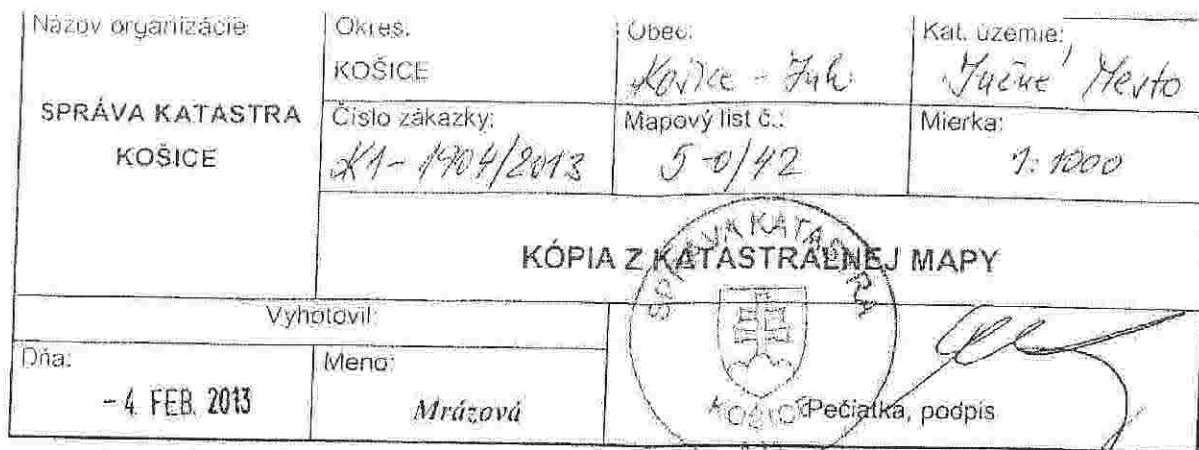 Názov organizácie
SPRÁVA KATASTRA
KOŠICE
Okres:
KOŠICE
Obec:
Košice - Juh
Kat. územie:
Južné Mesto
Číslo zákazky:
K1-1904/2013
Mapový list č.:
5-0/42
Mierka:
1:1000
KÓPIA Z KATASTRÁLNEJ MAPY
Vyhotovil:
Dňa:
- 4. FEB. 2013
Meno:
Mrázová
SPRÁVA KATASTRA
KOŠICE
Pečiatka, podpis